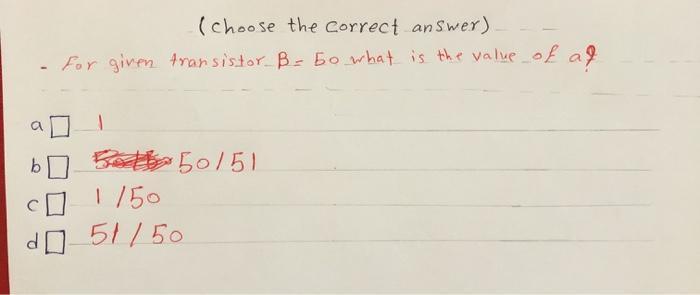 (choose the correct answer)
- For given transistor β= 50 what is the value of a?
a □ 1
b □ 50/51
c □ 1/50
d □ 51/50